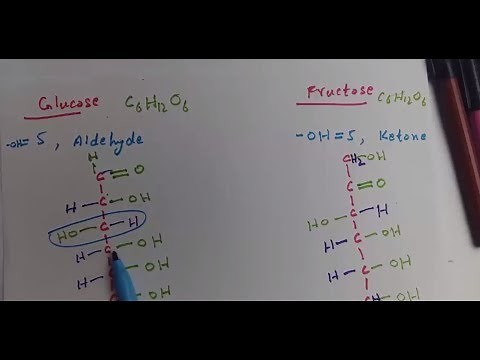 Glucose C₆H₁₂O₆
-OH=5, Aldehyde
H
C=O
H-C-OH
HO-C-H
H-C-OH
H-C-OH
OH
Fructose C₆H₁₂O₆
-OH=5, Ketone
CH₂-OH
C=O
HO-C-H
H-C-OH
H-C-OH
OH